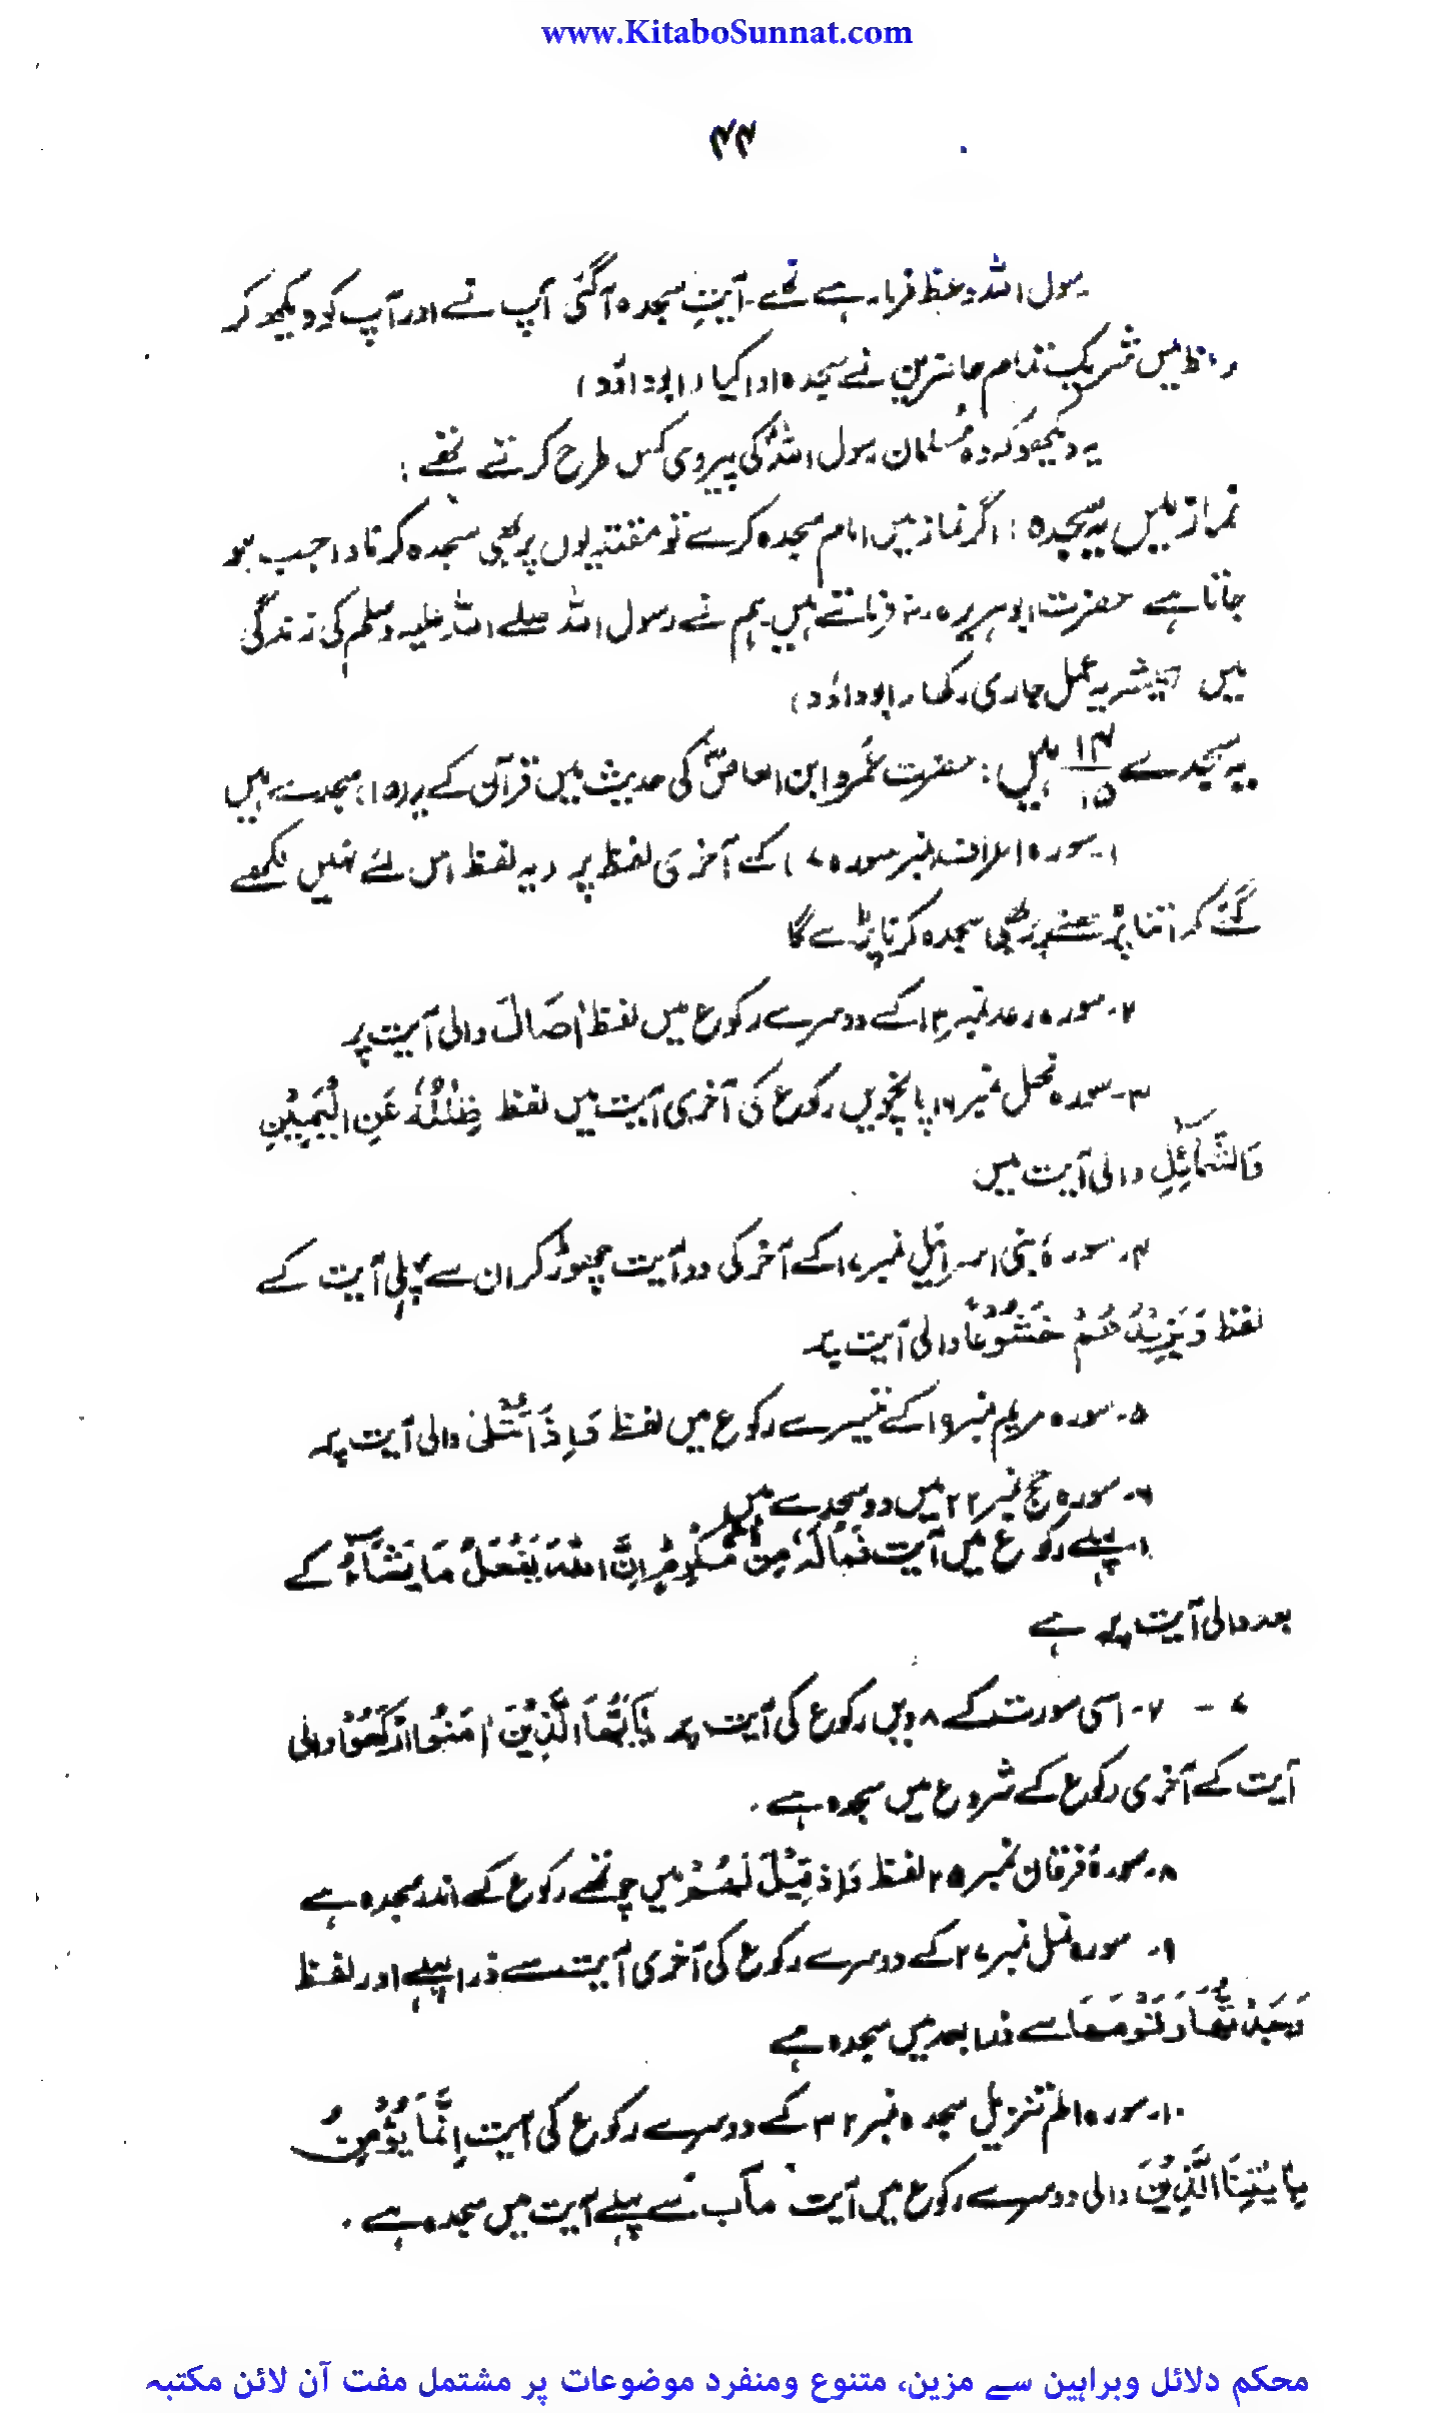 www.KitaboSunnat.com
۴۴
رسول اللہ وعظ فرما رہے تھے۔ آیتِ سجدہ آگئی آپ نے اور آپ کو دیکھ کر
وعظ میں شریک تمام حاضرین نے سجدہ ادا کیا (ابوداؤد)
یہ دیکھو کہ وہ مُسلمان رسول اللہ کی پیروی کس طرح کرتے تھے :
نماز میں یہ سجدہ : اگر نماز میں امام سجدہ کرے تو مقتدیوں پر بھی سجدہ کرنا واجب ہو
جاتا ہے حضرت ابوہریرہ رضہ فرماتے ہیں۔ ہم نے رسول اللہ صلے اللہ علیہ وسلم کی زندگی
میں ہمیشہ یہ عمل جاری رکھا (ابوداؤد)
یہ سجدے ۱۴/۱۵ ہیں : حضرت عمرو ابن العاصؓ کی حدیث میں قرآن کے (۱۵) سجدے ہیں
۱۔ سورہ اعراف نمبر سورہ ۷ ) کے آخری لفظ پر (یہ لفظ اس لئے نہیں لکھے
گئے کہ اتنا پڑھنے پر بھی سجدہ کرنا پڑے گا
۲۔ سورہ رعد نمبر ۱۳ کے دوسرے رکوع میں لفظ اٰصَالَ والی آیت پر
۳۔ سورہ نحل نمبر ۱۶ پانچویں رکوع کی آخری آیت میں لفظ ظِلٰلُہٗ عَنِ الْیَمِیْنِ
وَالشَّمَآئِلِ والی آیت میں
۴۔ سورۂ بنی اسرائیل نمبر ۱۷ کے آخر کی دو آیت چھوڑ کر ان سے پہلی آیت کے
لفظ وَیَزِیْدُ ھُمْ خُشُوْعًا والی آیت پر
۵۔ سورہ مریم نمبر ۱۹ کے تیسرے رکوع میں لفظ وَاِذَا تُتْلیٰ والی آیت پر
۶۔ سورہ حج نمبر ۲۲ میں دو سجدے ہیں
۱ پہلے رکوع میں آیت فَمَا لَہٗ مِنْ مُّکْرِمٍ اِنَّ اللہَ یَفْعَلُ مَا یَشَآءُ کے
بعد والی آیت پر ہے
۷ - ۷۔ اسی سورت کے ۸ ویں رکوع کی آیت پر یٰٓاَیُّھَا الَّذِیْنَ اٰمَنُوا ارْکَعُوْا والی
آیت کے آخری رکوع کے شروع میں سجدہ ہے ۔
۸۔ سورۂ فرقان نمبر ۲۵ لفظ وَاِذَ قِیْلَ لَھُمْ میں چوتھے رکوع کے اندر سجدہ ہے
۹۔ سورہ نمل نمبر ۲۷ کے دوسرے رکوع کی آخری آیت سے ذرا پہلے اور لفظ
وَجَدْتُّھَا وَقَوْمَھَا سے ذرا بعد میں سجدہ ہے
۱۰۔ سورہ الم تنزیل سجدہ نمبر ۳۲ کے دوسرے رکوع کی آیت اِنَّمَا یُؤْمِنُ
بِاٰیٰتِنَا الَّذِیْنَ والی دوسرے رکوع میں آیت مآب سے پہلے آیت میں سجدہ ہے ۔
محکم دلائل وبراہین سے مزین، متنوع ومنفرد موضوعات پر مشتمل مفت آن لائن مکتبہ